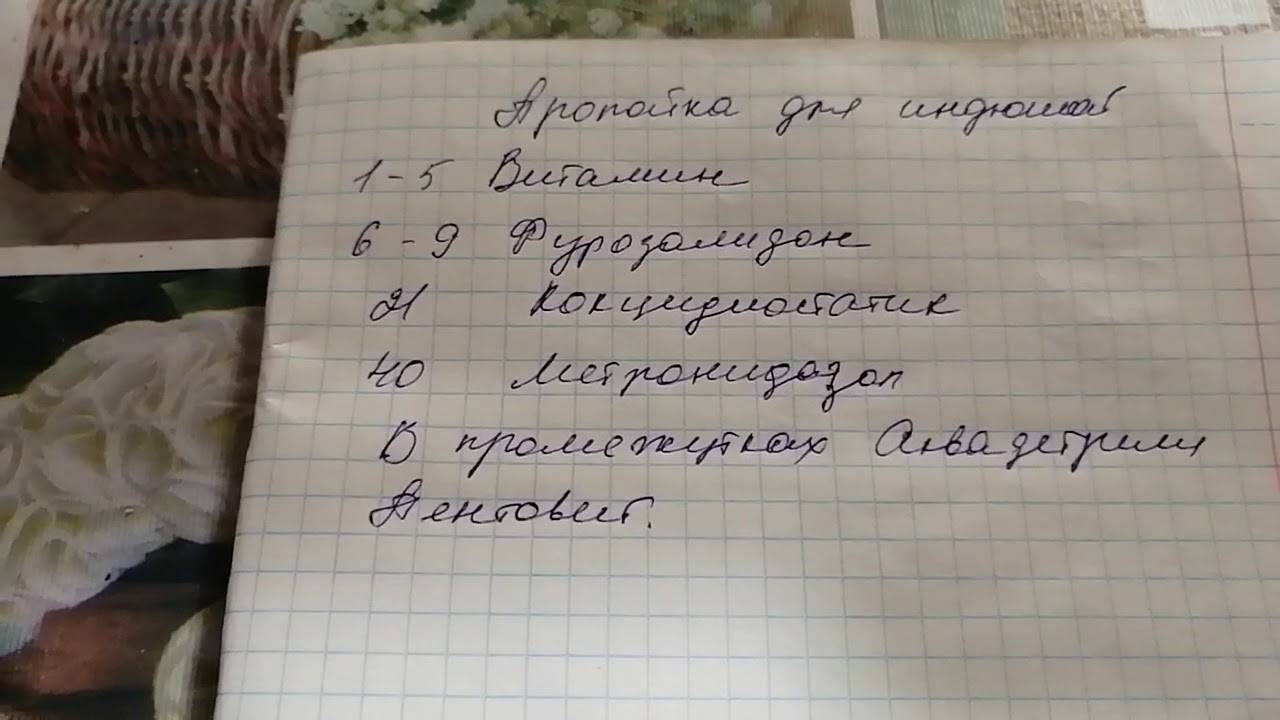 Пропойка для индюшат
1-5 Витамин
6-9 Фурозолидон
21 Кокцидиостатик
40 Метронидазол
В промежутках Аквадетрим
Пентовит.